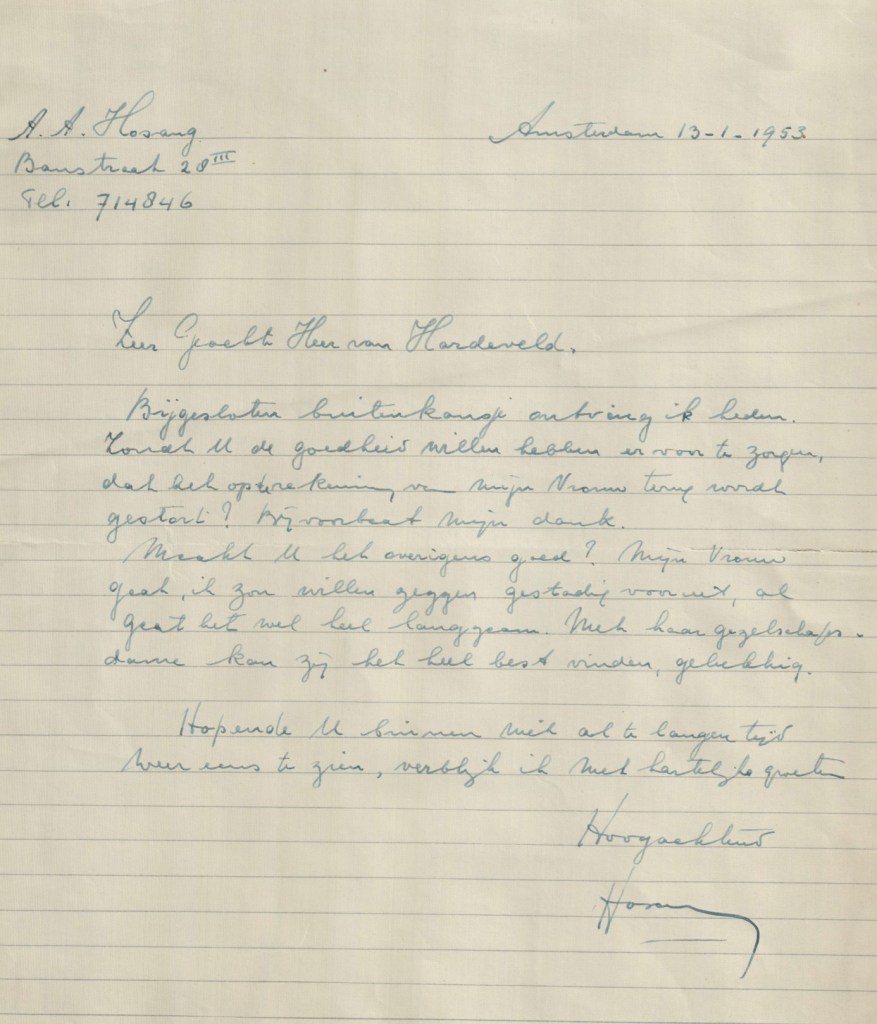 A. A. Hosang
Banstraat 28 III
Tel. 714846
Amsterdam 13-1-1953
Zeer Geachte Heer van Hardeveld,
Bijgesloten buitenkansje ontving ik heden.
Zoudt U de goedheid willen hebben er voor te zorgen,
dat het op de rekening van mijn Vrouw terug wordt
gestort? Bij voorbaat mijn dank.
Maakt U het overigens goed? Mijn Vrouw
gaat, ik zou willen zeggen gestadig vooruit, al
gaat het wel heel langzaam. Met haar gezelschaps-
dame kan zij het heel best vinden, gelukkig.
Hopende U binnen niet al te langen tijd
weer eens te zien, verblijf ik met hartelijke groeten
Hoogachtend
Hosang